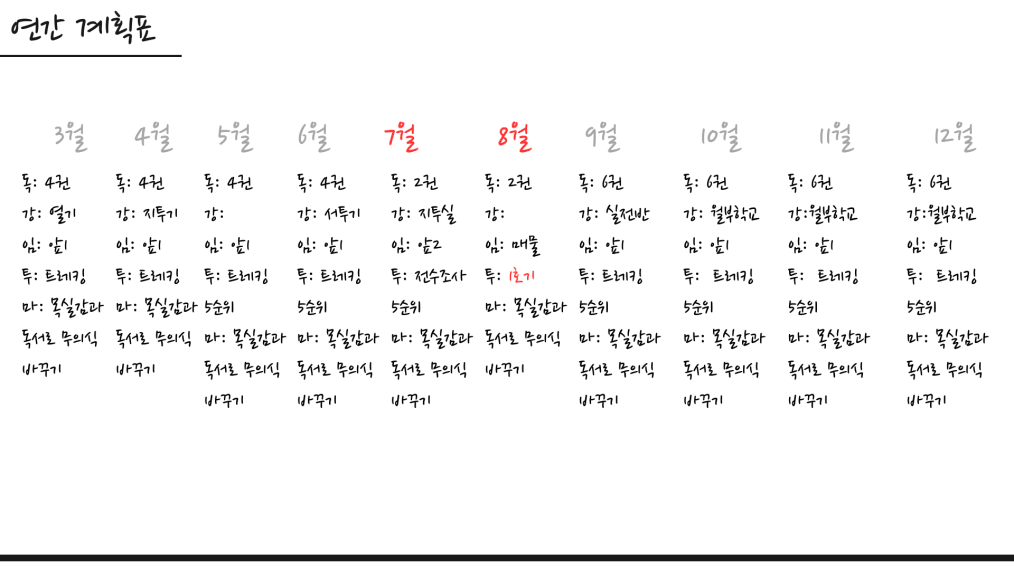 연간 계획표
3월
독: 4권
강: 열기
임: 앞1
투: 트레킹
마: 목실감과
독서로 무의식
바꾸기
4월
독: 4권
강: 지투기
임: 앞1
투: 트레킹
마: 목실감과
독서로 무의식
바꾸기
5월
독: 4권
강:
임: 앞1
투: 트레킹
5순위
마: 목실감과
독서로 무의식
바꾸기
6월
독: 4권
강: 서투기
임: 앞1
투: 트레킹
5순위
마: 목실감과
독서로 무의식
바꾸기
7월
독: 2권
강: 지투실
임: 앞2
투: 전수조사
5순위
마: 목실감과
독서로 무의식
바꾸기
8월
독: 2권
강:
임: 매물
투: 1호기
마: 목실감과
독서로 무의식
바꾸기
9월
독: 6권
강: 실전반
임: 앞1
투: 트레킹
5순위
마: 목실감과
독서로 무의식
바꾸기
10월
독: 6권
강: 월부학교
임: 앞1
투: 트레킹
5순위
마: 목실감과
독서로 무의식
바꾸기
11월
독: 6권
강:월부학교
임: 앞1
투: 트레킹
5순위
마: 목실감과
독서로 무의식
바꾸기
12월
독: 6권
강:월부학교
임: 앞1
투: 트레킹
5순위
마: 목실감과
독서로 무의식
바꾸기